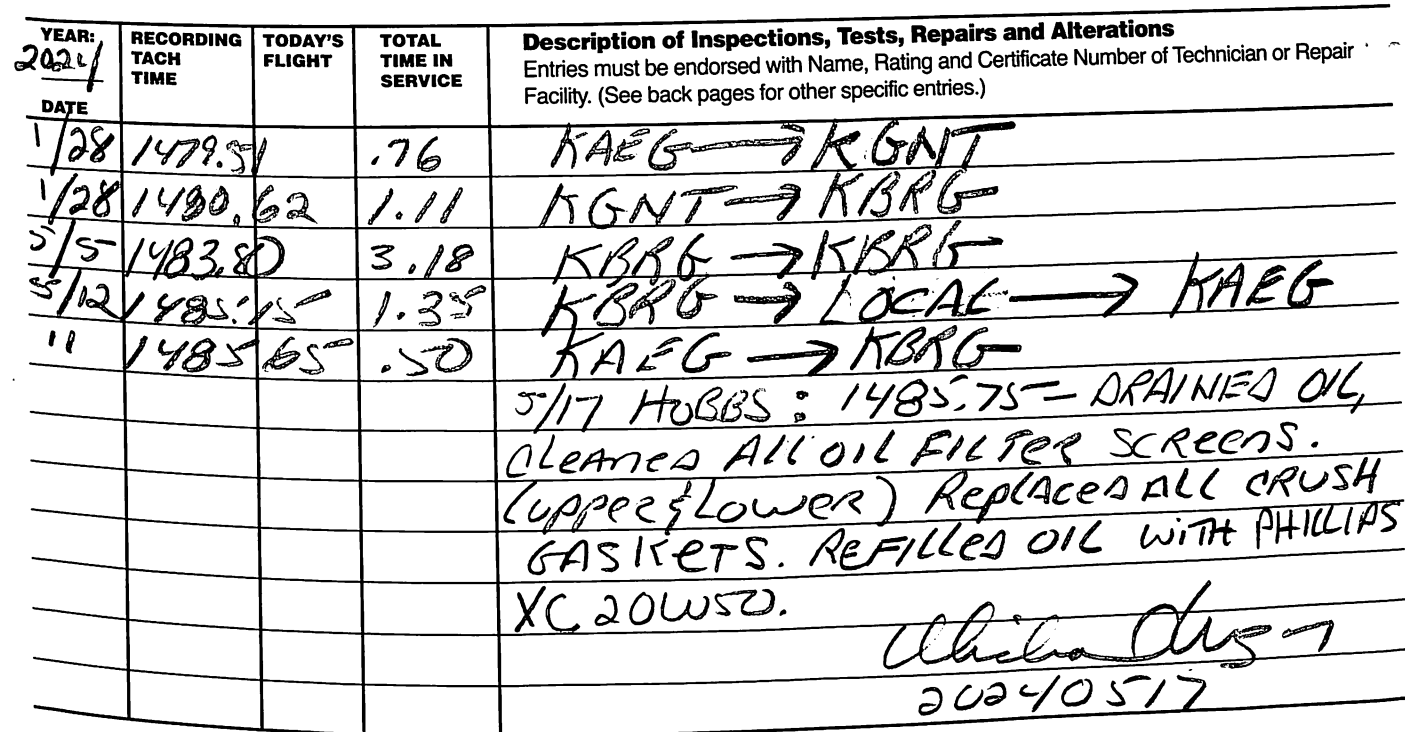 YEAR: 2024 RECORDING TACH TIME TODAY'S FLIGHT TOTAL TIME IN SERVICE Description of Inspections, Tests, Repairs and Alterations
Entries must be endorsed with Name, Rating and Certificate Number of Technician or Repair
DATE Facility. (See back pages for other specific entries.)
1/28 1479.51 .76 KAEG → KGNT
1/28 1480.62 1.11 KGNT → KBRG
5/5 1483.80 3.18 KBRG → KBRG
5/12 1485.15 1.35 KBRG → LOCAL → KAEG
11 1485.65 .50 KAEG → KBRG
5/17 HOBBS: 1485.75 - DRAINED OIL,
CLEANED ALL OIL FILTER SCREENS.
(UPPER & LOWER) REPLACED ALL CRUSH
GASKETS. REFILLED OIL WITH PHILLIPS
XC 20W50.
20240517